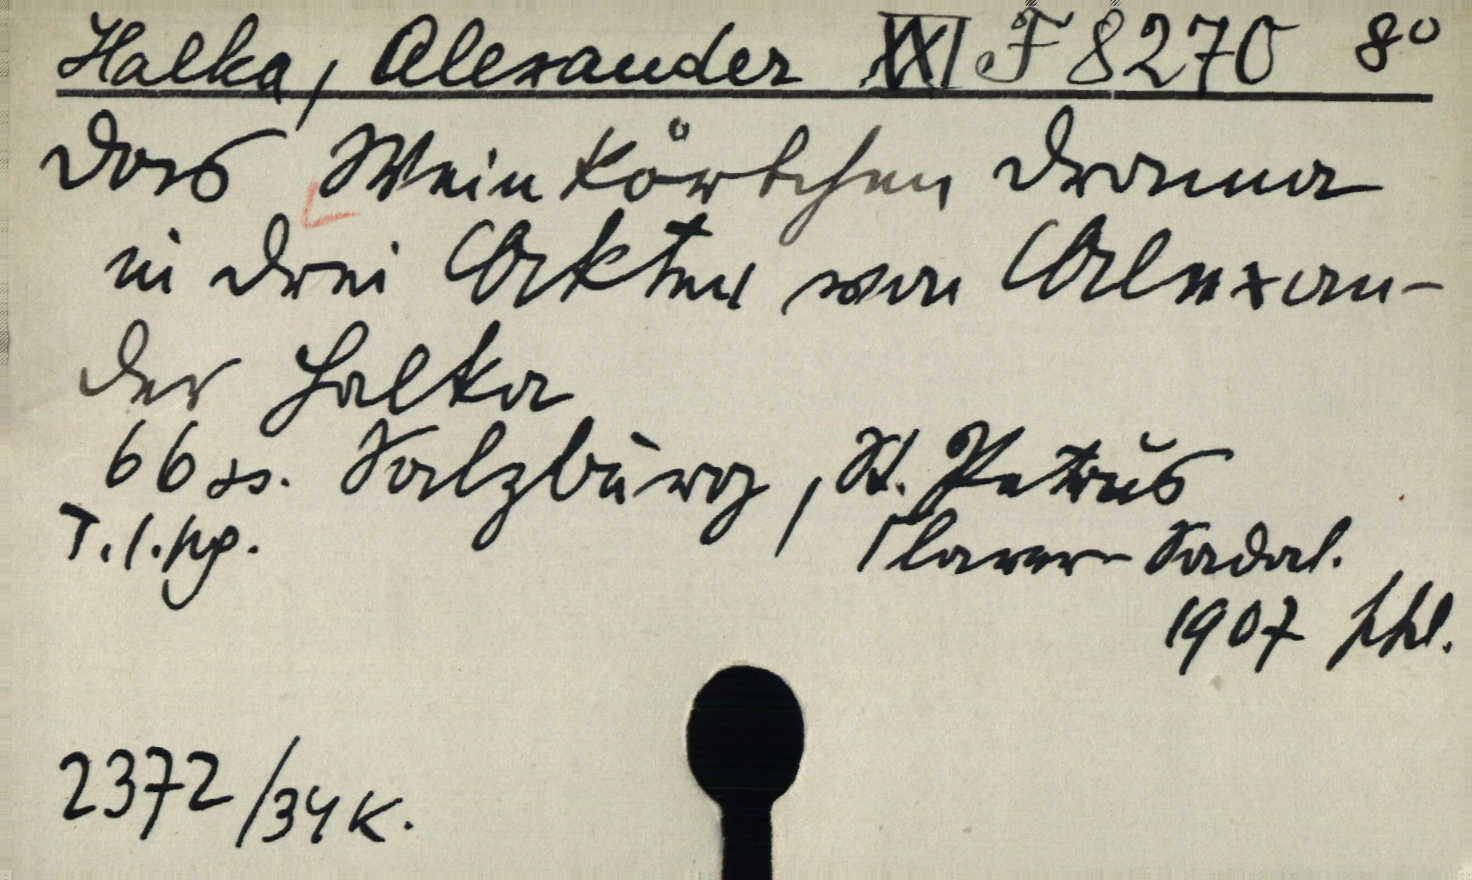 Halka, Alexander XXI F 8270 8°
Das Wein Körbchen Drama
in drei Akten von Alexan-
der Halka
66 ss. Salzburg, St. Petrus
Claver Sodal.
1907
2372/34 K.